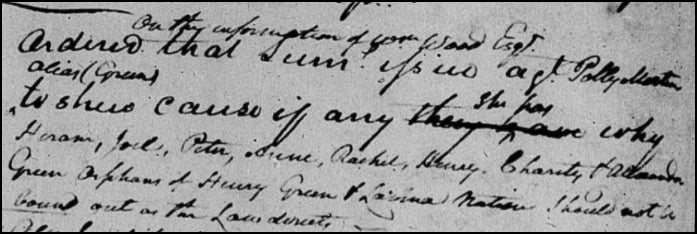 On the information of Wm Wood Esqr.
Ordered that Sums. issue agt. Polly Morton
alias (Green)
to shew cause if any they have she has why
Hiram, Joel, Peter, Anne, Rachel, Henry, Charity &
Green Orphans of Henry Green & Nation should not be
bound out as the Law directs